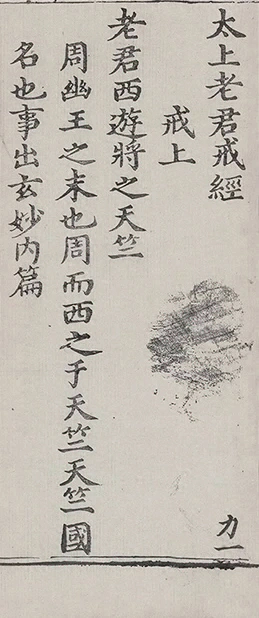 太上老君戒經
力一
戒上
老君西遊將之天竺
周幽王之末也周而西之于天竺天竺國
名也事出玄妙內篇